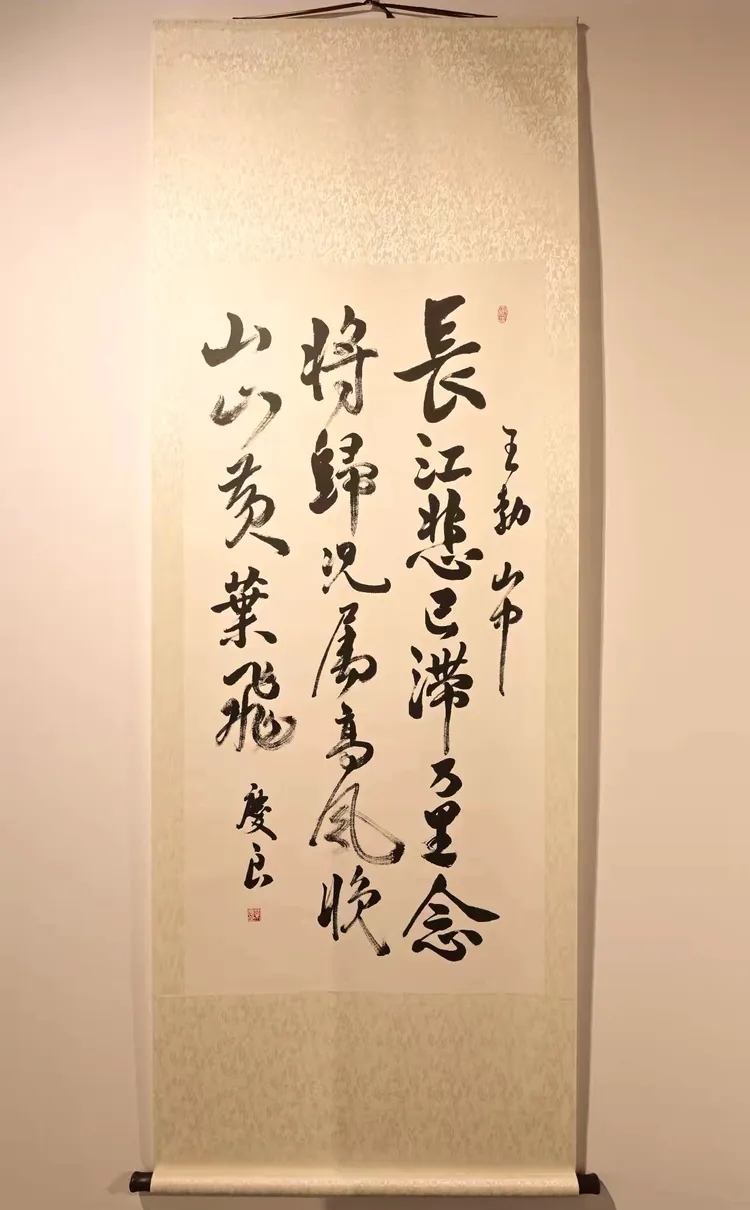 王勃山中
長江悲已滯万里念
將歸況属高風晚
山山黄葉飛
慶良